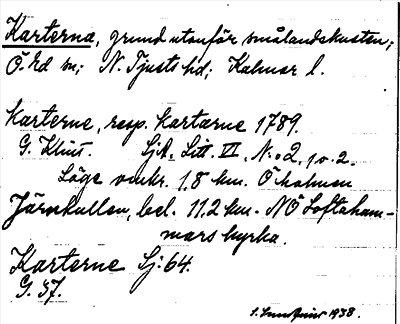 Karterna, grund utanför smålandskusten;
Ö. Ed sn; N. Tjusts hd; Kalmar l.
Karterne, resp. Kartarne 1789.
G. Klint. SjA, Litt. VI, N:o 2, 1 o. 2.
Läge omkr. 1.8 km. Ö holmen
Järnkullen, bel. 11.2 km. NÖ Loftaham-
mars kyrka.
Karterne Sj: 64.
G. 37.
1938.